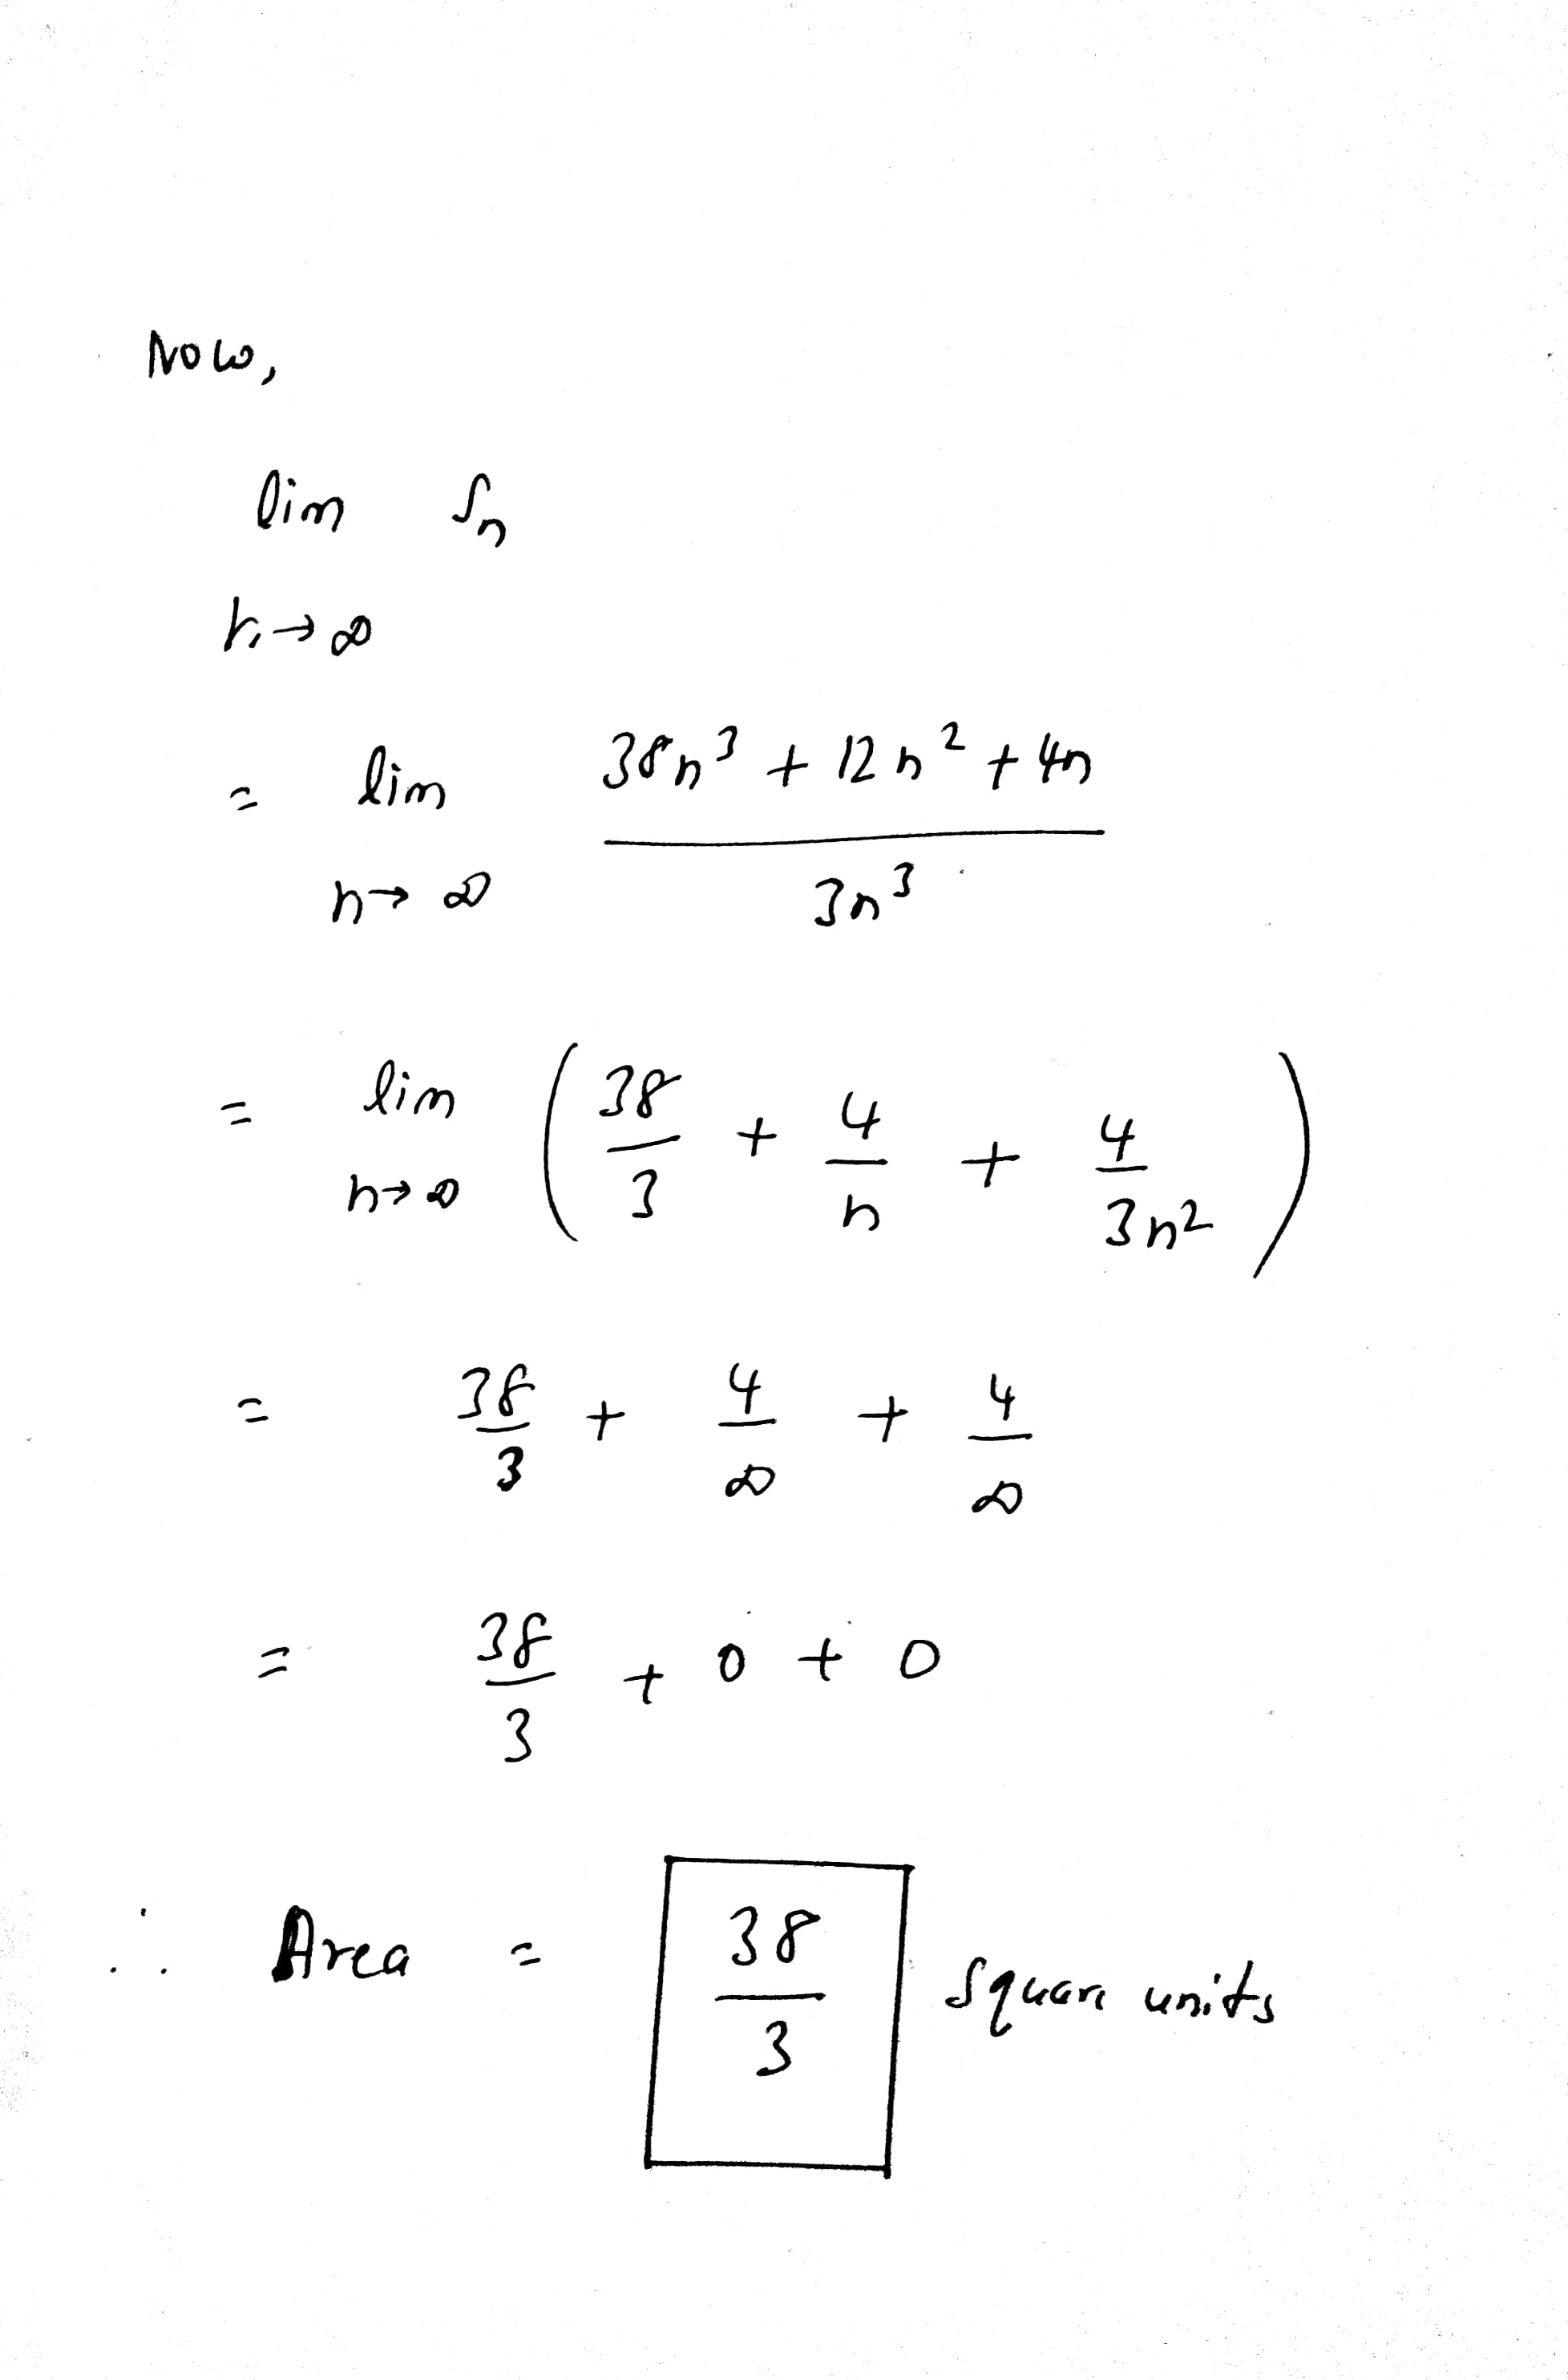 Now,
lim Sn
n→∞
= lim 38n³ + 12n² + 4n
n→∞ 3n³
= lim ( 38/3 + 4/n + 4/3n² )
n→∞
= 38/3 + 4/∞ + 4/∞
= 38/3 + 0 + 0
∴ Area = 38/3 square units